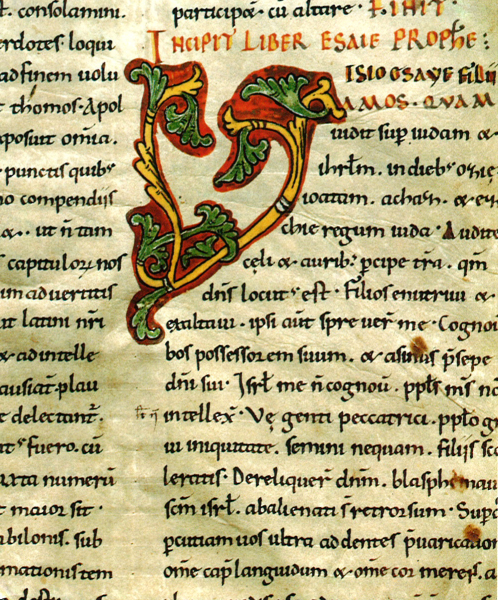 t. consolamini.
erdotes. loqui
ad finem uolu
t thomos. Apol
xposuit om̄ia.
punctis quibꝰ
no compendiis
&. ut n̄ tam
capitulorꝝ nos
um aduertitis
ut latini nr̄i
& ad intelle
ausiat. plau
t delectant̄.
t fuero. cū
uxta numerū
t maior sit.
bilonis. sub
mationis tem
participa&. cū altare. FINIT.
INCIPIT LIBER ESAIE PROPHE:
VISIO ESAYE FILII
AMOS. QVAM
uidit suꝑ iudam &
ihrl̄m. in diebꝰ
ioatam. achaz. &
chie regum iuda. Audite
cęli & auribꝰ ꝑcipe tr̄a. qm̄
dn̄s locutꝰ est. Filios enutriui &
exaltaui. ipsi aūt spreuer̄ me. Cognou
bos possessorem suum. & asinus p̄sepe
dn̄i sui. Isrl̄ me n̄ cognou. ppl̄s mꝰ nō
intellex̄. Vę genti peccatrici. ppl̄o
ui iniquitate. semini nequam. filiis
leratis. Dereliquer̄ dn̄m. blasphemau
sc̄m isrl̄. abalienati s̄ retrorsum. Sup
ꝑcutiam uos ultra addentes p̄uaricationē
om̄e cap̄ languidum & om̄e cor merens. a